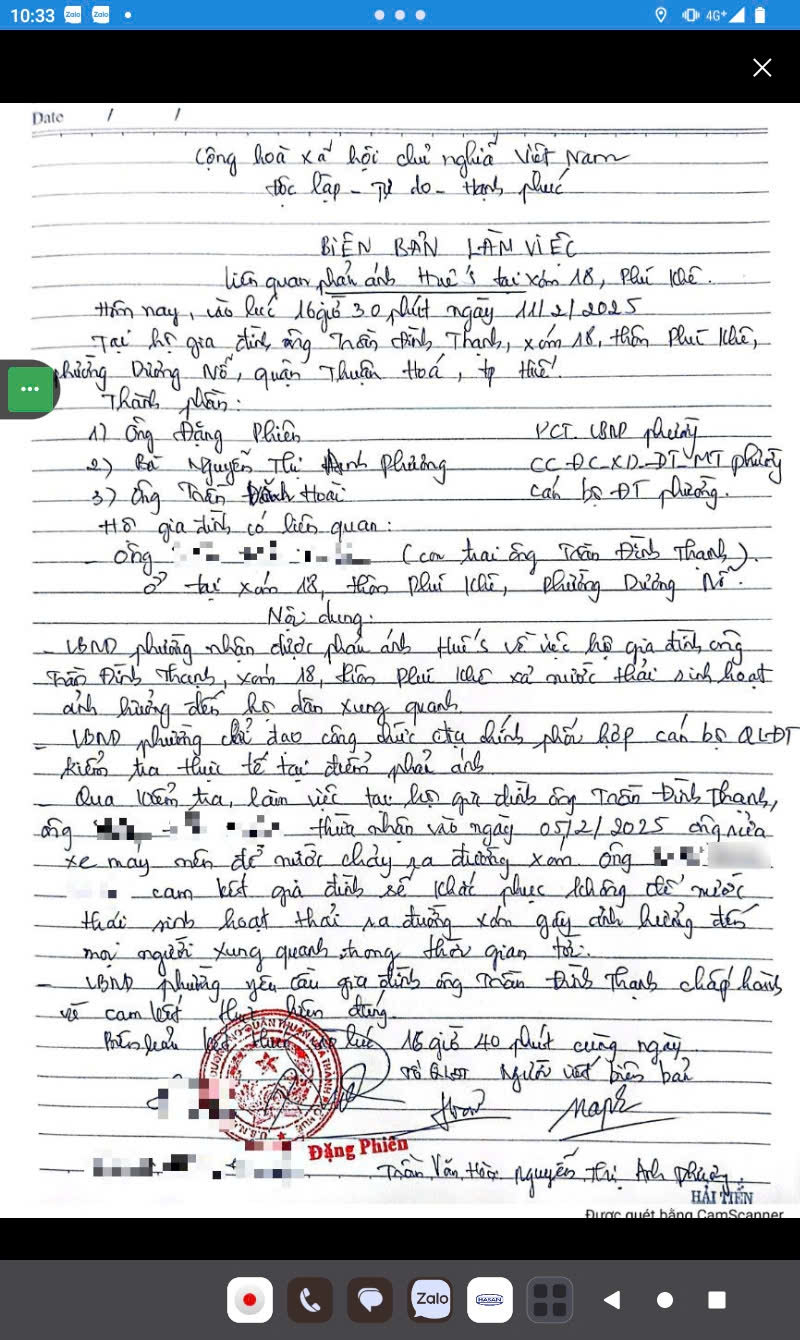 10:33 Zalo Zalo 4G+
Date / /
Cộng hoà xã hội chủ nghĩa Việt Nam
Độc lập - Tự do - Hạnh phúc
BIÊN BẢN LÀM VIỆC
Liên quan phản ánh Huế's tại xóm 18, Phú Khê.
Hôm nay, vào lúc 16 giờ 30 phút ngày 11/2/2025
Tại hộ gia đình ông Trần Đình Thạnh, xóm 18, thôn Phú Khê,
phường Dương Nỗ, quận Thuận Hoá, tp Huế.
Thành phần:
1) Ông Đặng Phiên PCT. UBND phường
2) Bà Nguyễn Thị Anh Phương CC-ĐC-XD-ĐT-MT phường
3) Ông Trần Hoài cán bộ ĐT phường.
Hộ gia đình có liên quan:
- Ông (con trai ông Trần Đình Thạnh).
Ở tại xóm 18, thôn Phú Khê, phường Dương Nỗ.
Nội dung:
- UBND phường nhận được phản ánh Huế's về việc hộ gia đình ông
Trần Đình Thạnh, xóm 18, thôn Phú Khê xả nước thải sinh hoạt
ảnh hưởng đến hộ dân xung quanh.
- UBND phường chỉ đạo công chức địa chính phối hợp cán bộ QLĐT
kiểm tra thực tế tại điểm phản ánh.
- Qua kiểm tra, làm việc tại hộ gia đình ông Trần Đình Thạnh,
ông thừa nhận vào ngày 05/2/2025 ông rửa
xe máy nên để nước chảy ra đường xóm. Ông
cam kết gia đình sẽ khắc phục không để nước
thải sinh hoạt thải ra đường xóm gây ảnh hưởng đến
mọi người xung quanh trong thời gian tới.
- UBND phường yêu cầu gia đình ông Trần Đình Thạnh chấp hành
về cam kết thực hiện đúng.
Biên bản kết thúc vào lúc 16 giờ 40 phút cùng ngày
Tổ QLĐT Người viết biên bản
Đặng Phiên
Trần Văn Hoài Nguyễn Thị Anh Phương
HẢI TIẾN
Được quét bằng CamScanner
Zalo HASAN